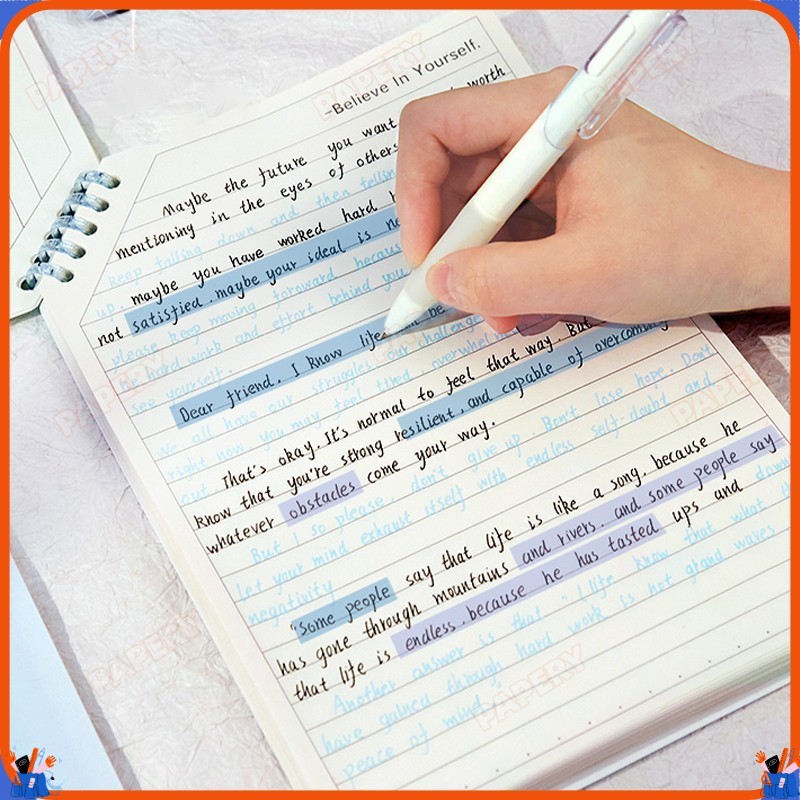 -Believe In Yourself.
Maybe the future you want worth
mentioning in the eyes of others
keep falling down and then telling
up. maybe you have worked hard
not satisfied, maybe your ideal is
please keep moving forward because
hard work and effort behind you
see yourself.
Dear friend. I know life be
We all have our struggles our challenges
right now, you may feel tired, overwhelmed
That's okay. It's normal to feel that way. But
know that you're strong resilient, and capable of overcoming
whatever obstacles come your way.
But I so please, don't give up. Don't lose hope. Don't
let your mind exhaust itself with endless self-doubt and
negativity
"Some people say that life is like a song. because he
has gone through mountains and rivers. and some people say
that life is endless, because he has tasted ups and down
Another answer is that "I life know that what
have gained through hard work is not grand waves
peace of mind."
PAPERY
PAPERY
PAPERY
PAPERY
PAPERY
PAPERY